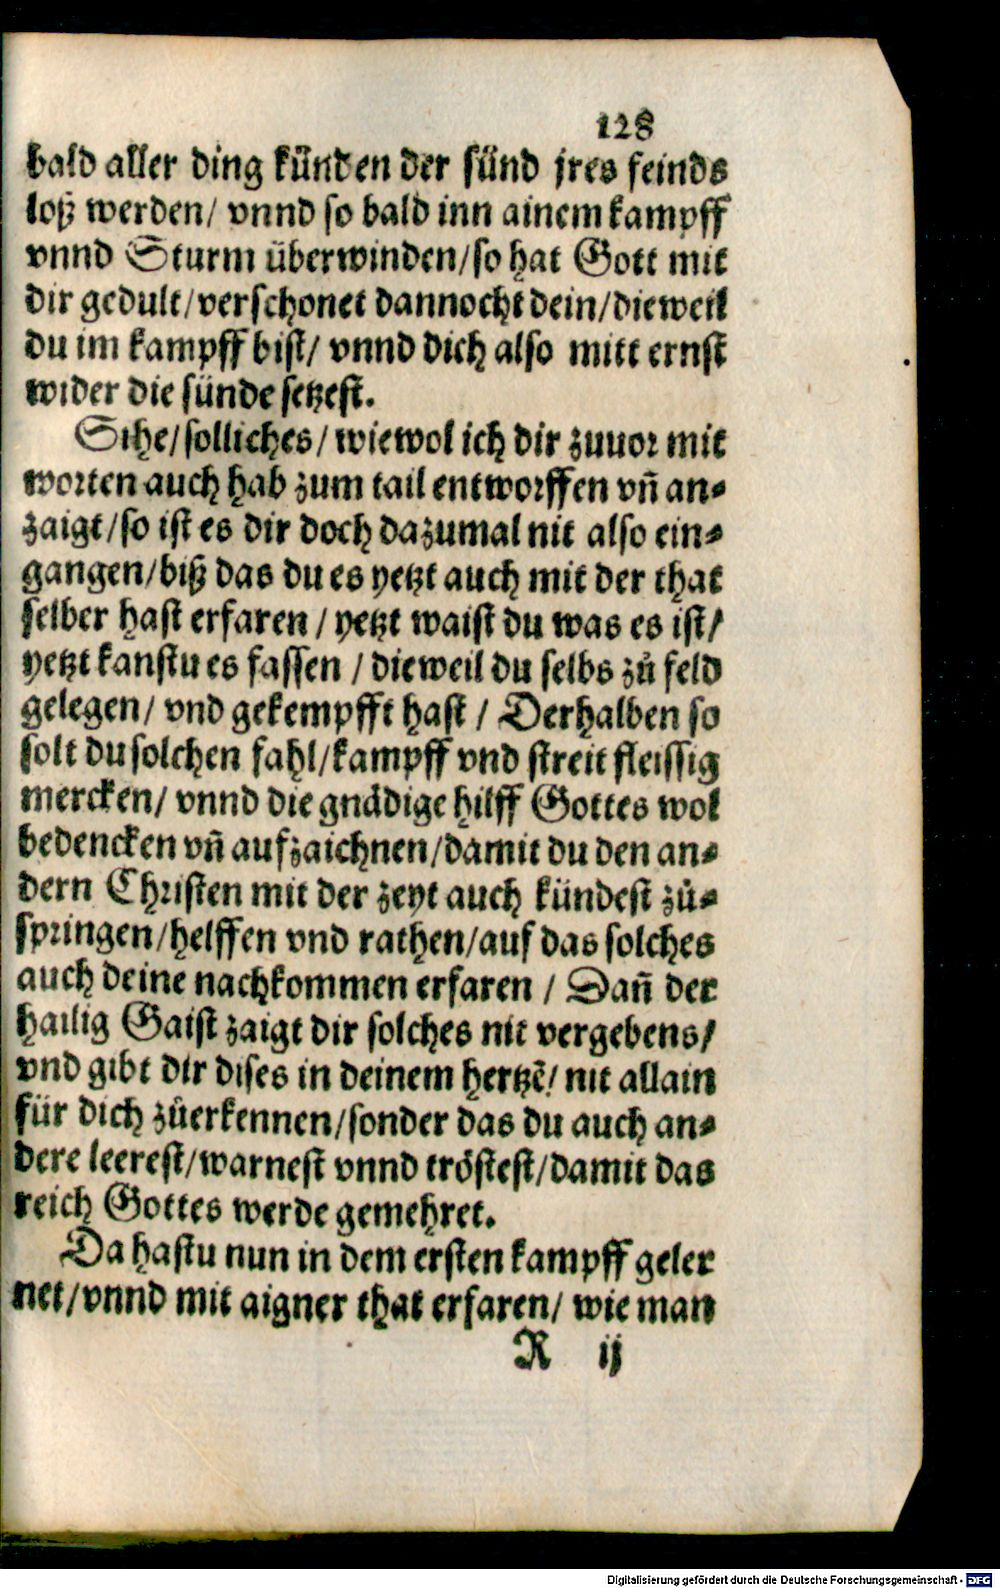 128
bald aller ding künden der sünd jres feinds
loß werden/ vnnd so bald inn ainem kampff
vnnd Sturm überwinden/so hat Gott mit
dir gedult/verschonet dannocht dein/dieweil
du im kampff bist/ vnnd dich also mitt ernst
wider die sünde setzest.
Sihe/solliches/wiewol ich dir zuuor mit
worten auch hab zum tail entworffen vñ an-
zaigt/so ist es dir doch dazumal nit also ein-
gangen/biß das du es yetzt auch mit der that
selber hast erfaren / yetzt waist du was es ist/
yetzt kanstu es fassen / dieweil du selbs zů feld
gelegen/ vnd gekempfft hast / Derhalben so
solt du solchen fahl/kampff vnd streit fleissig
mercken/ vnnd die gnädige hilff Gottes wol
bedencken vñ aufzaichnen/damit du den an-
dern Christen mit der zeyt auch kündest zů-
springen/helffen vnd rathen/auf das solches
auch deine nachkommen erfaren / Dañ der
hailig Gaist zaigt dir solches nit vergebens/
vnd gibt dir dises in deinem hertzē/ nit allain
für dich zůerkennen/sonder das du auch an-
dere leerest/warnest vnnd tröstest/damit das
reich Gottes werde gemehret.
Da hastu nun in dem ersten kampff geler
net/vnnd mit aigner that erfaren/ wie man
R ij
Digitalisierung gefördert durch die Deutsche Forschungsgemeinschaft - DFG